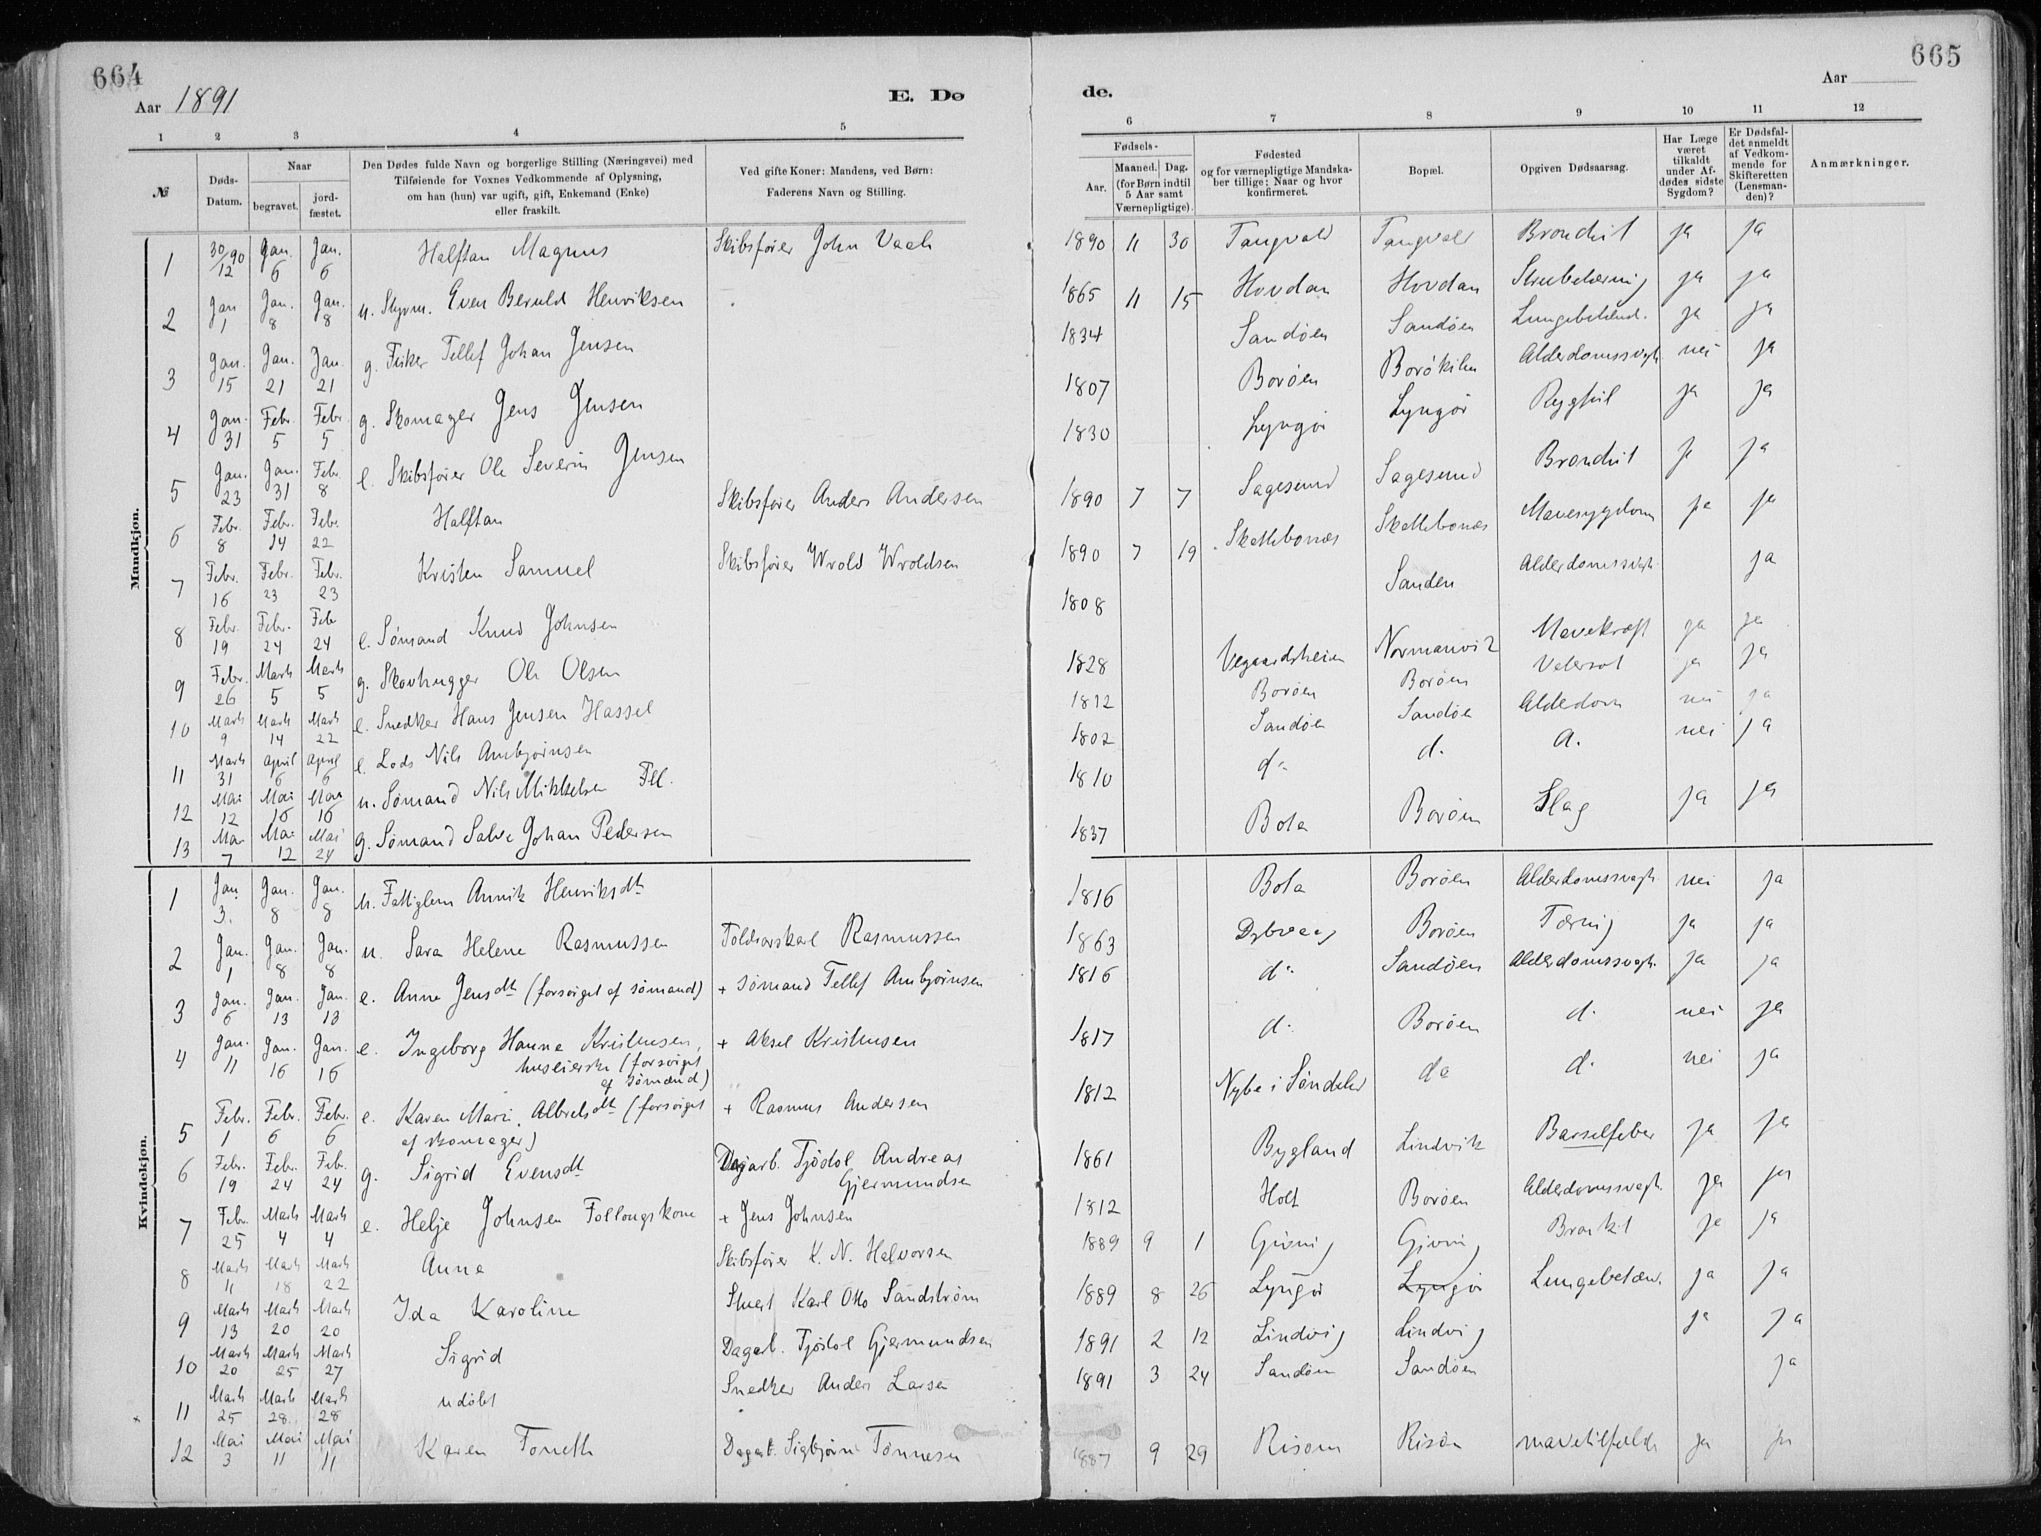 664
Aar 1891
E. Dø
1 2 3 4 5
№
Døds-Datum.
Naar
begravet.
jord-fæstet.
Den Dødes fulde Navn og borgerlige Stilling (Næringsvei) med
Tilføiende for Voxnes Vedkommende af Oplysning,
om han (hun) var ugift, gift, Enkemand (Enke)
eller fraskilt.
Ved gifte Koner: Mandens, ved Børn:
Faderens Navn og Stilling.
Mandkjøn.
1 30/12 90 Jan. 6 Jan. 6 Halftan Magnus Skibsfører John Vaah
2 Jan 1 Jan. 8 Jan. 8 u. Styrm. Even Beruld Henriksen
3 Jan. 15 Jan. 21 Jan. 21 g. Fisker Tellef Johan Jensen
4 Jan. 31 Febr. 5 Febr. 5 g. Skomager Jens Jensen
5 Jan. 23 Jan. 31 Febr 8 e. Skibsfører Ole Severin Jensen
6 Febr. 8 Febr. 14 Febr. 22 Halftan Skibsfører Anders Andersen
7 Febr. 16 Febr. 23 Febr. 23 Kristen Samuel Skibsfører Wrold Wroldsen
8 Febr. 19 Febr. 24 Febr 24 e. Sømand Knud Johnsen
9 Febr. 26 Marts 5 Marts 5 g. Skovhugger Ole Olsen
10 Marts 9 Marts 14 Marts 22 e. Snedker Hans Jensen Hassel
11 Marts 31 April 6 April 6 e. Lods Nils Ambjørnsen
12 Mai 12 Mai 16 Mai 16 u. Sømand Nils Mikkelsen Fll.
13 Mai 7 Mai 12 Mai 24 g. Sømand Salve Johan Pedersen
Kvindekjøn.
1 Jan. 3. Jan. 8 Jan. 8 u. Fattiglem Annik Henriksdtr
2 Jan. 1 Jan. 8 Jan. 8 u. Sara Helene Rasmussen Toldroerskarl Rasmussen
3 Jan. 6 Jan. 13 Jan. 13 e. Anne Jensdtr (forsørget af sømand) + sømand Tellef Ambjørnsen
4 Jan. 11 Jan. 16 Jan. 16 e. Ingeborg Hanne Kristensen, + Aksel Kristensen
huseierske (forsørget
af sømænd)
5 Febr. 1 Febr. 6 Febr. 6 e. Karen Marie Albretsdtr (forsørget + Rasmus Andersen
af skomager)
6 Febr. 19 Febr. 24 Feb. 24 g. Sigrid Evensdtr Dagarb. Tjødol Andreas
Gjermundsen
7 Febr. 25 Marts 4 Marts 4 e. Helje Johnsen Follougskone + Jens Johnsen
8 Marts 11 Marts 18 Marts 22 Anne Skibsfører K. N. Halvorsen
9 Marts 13 Marts 20 Marts 20 Ida Karoline Stuert Karl Otto Sandstrøm
10 Marts 20 Marts 25 Marts 27 Sigrid Dagarb. Tjødol Gjermundsen
11 Marts 25 Marts 28 Marts 28 udøbt Snedker Anders Larsen
12 Mai 3 Mai 11 Mai 11 Karen Toneth Dagarb. Sigbjørn Tønnesen
665
Aar
de.
6 7 8 9 10 11 12
Fødsels-
Aar.
Maaned. Dag.
(for Børn indtil
5 Aar samt
Værnepligtige).
Fødested
og for værnepligtige Mandska-
ber tillige: Naar og hvor
konfirmeret.
Bopæl.
Opgiven Dødsaarsag.
Har Læge
været
tilkaldt
under Af-
dødes sidste
Sygdom?
Er Dødsfal-
det anmeldt
af Vedkom-
mende for
Skifteretten
(Lensman-
den)?
Anmærkninger.
1890 11 30 Tangvald Tangvald Bronchit ja ja
1865 11 15 Hovdan Hovdan Strubetæring ja ja
1834 Sandøen Sandøen Lungebetænd. ja ja
1807 Borøen Borøkilen Alderdomssvagh. nei ja
1830 Lyngør Lyngør Rygfeil ja ja
1890 7 7 Sagesund Sagesund Bronchit ja ja
1890 7 19 Skattebonæs Skattebonæs Mavesygdom ja ja
1808 Sanden Alderdomssvagh. ja
1828 Vegaardsheien Normanvig Mavekræft ja ja
1812 Borøen Borøen Vatersot ja ja
1802 Sandøen Sandøen Alderdom nei ja
1810 do d. a. nei ja
1837 Bota Borøen Slag ja ja
1816 Bota Borøen Alderdomssvagh. nei ja
1863 Dybvaag Borøen Tæring ja ja
1816 do Sandøen Alderdomssvagh. ja ja
1817 d. Borøen d. nei ja
1812 Nybe i Søndeled do d. nei ja
1861 Bygland Lindvik Barselfeber ja ja
1812 Holt Borøen Alderdomssvagh. ja ja
1889 9 1 Gjeving Gjeving Bronkit ja ja
1889 8 26 Lyngør Lyngør Lungebetæn. ja ja
1891 2 12 Lindvig Lindvig ja ja
1891 3 24 Sandøen Sandøen ja
1887 9 29 Risøen Risøen mavetilfælde ja ja